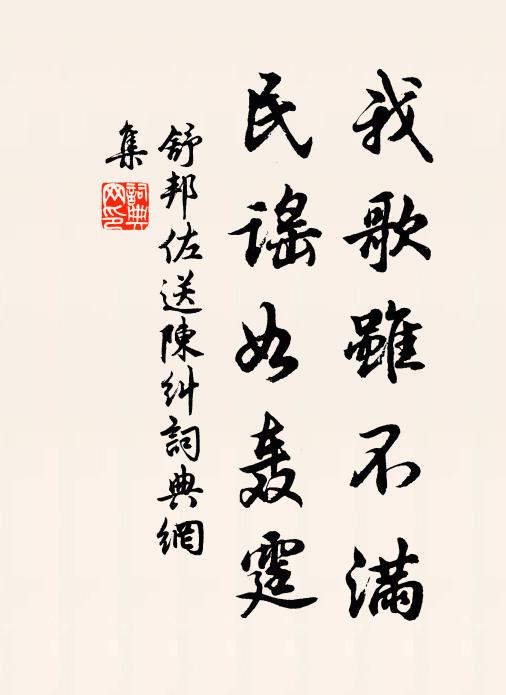 我歌雖不満
民謠如轰霆
舒邦佐送陳糾詞典網
集
詞典網印